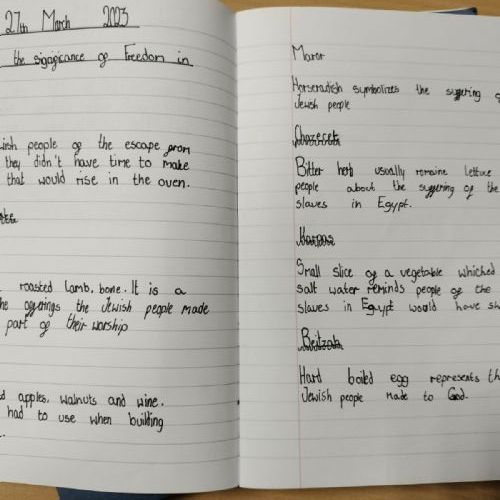 27th March 2023
the significance of Freedom in
people of the escape from
they didn't have time to make
that would rise in the oven.
roasted lamb bone. It is a
offerings the Jewish people made
part of their worship
apples, walnuts and wine.
had to use when building
Maror
Horseradish symbolizes the suffering
Jewish people
Chazeret
Bitter herb usually romaine lettuce
people about the suffering of the
slaves in Egypt.
Karpas
Small slice of a vegetable whiched
salt water reminds people of the
slaves in Egypt would have
Beitzah
Hard boiled egg represents
Jewish people made to God.